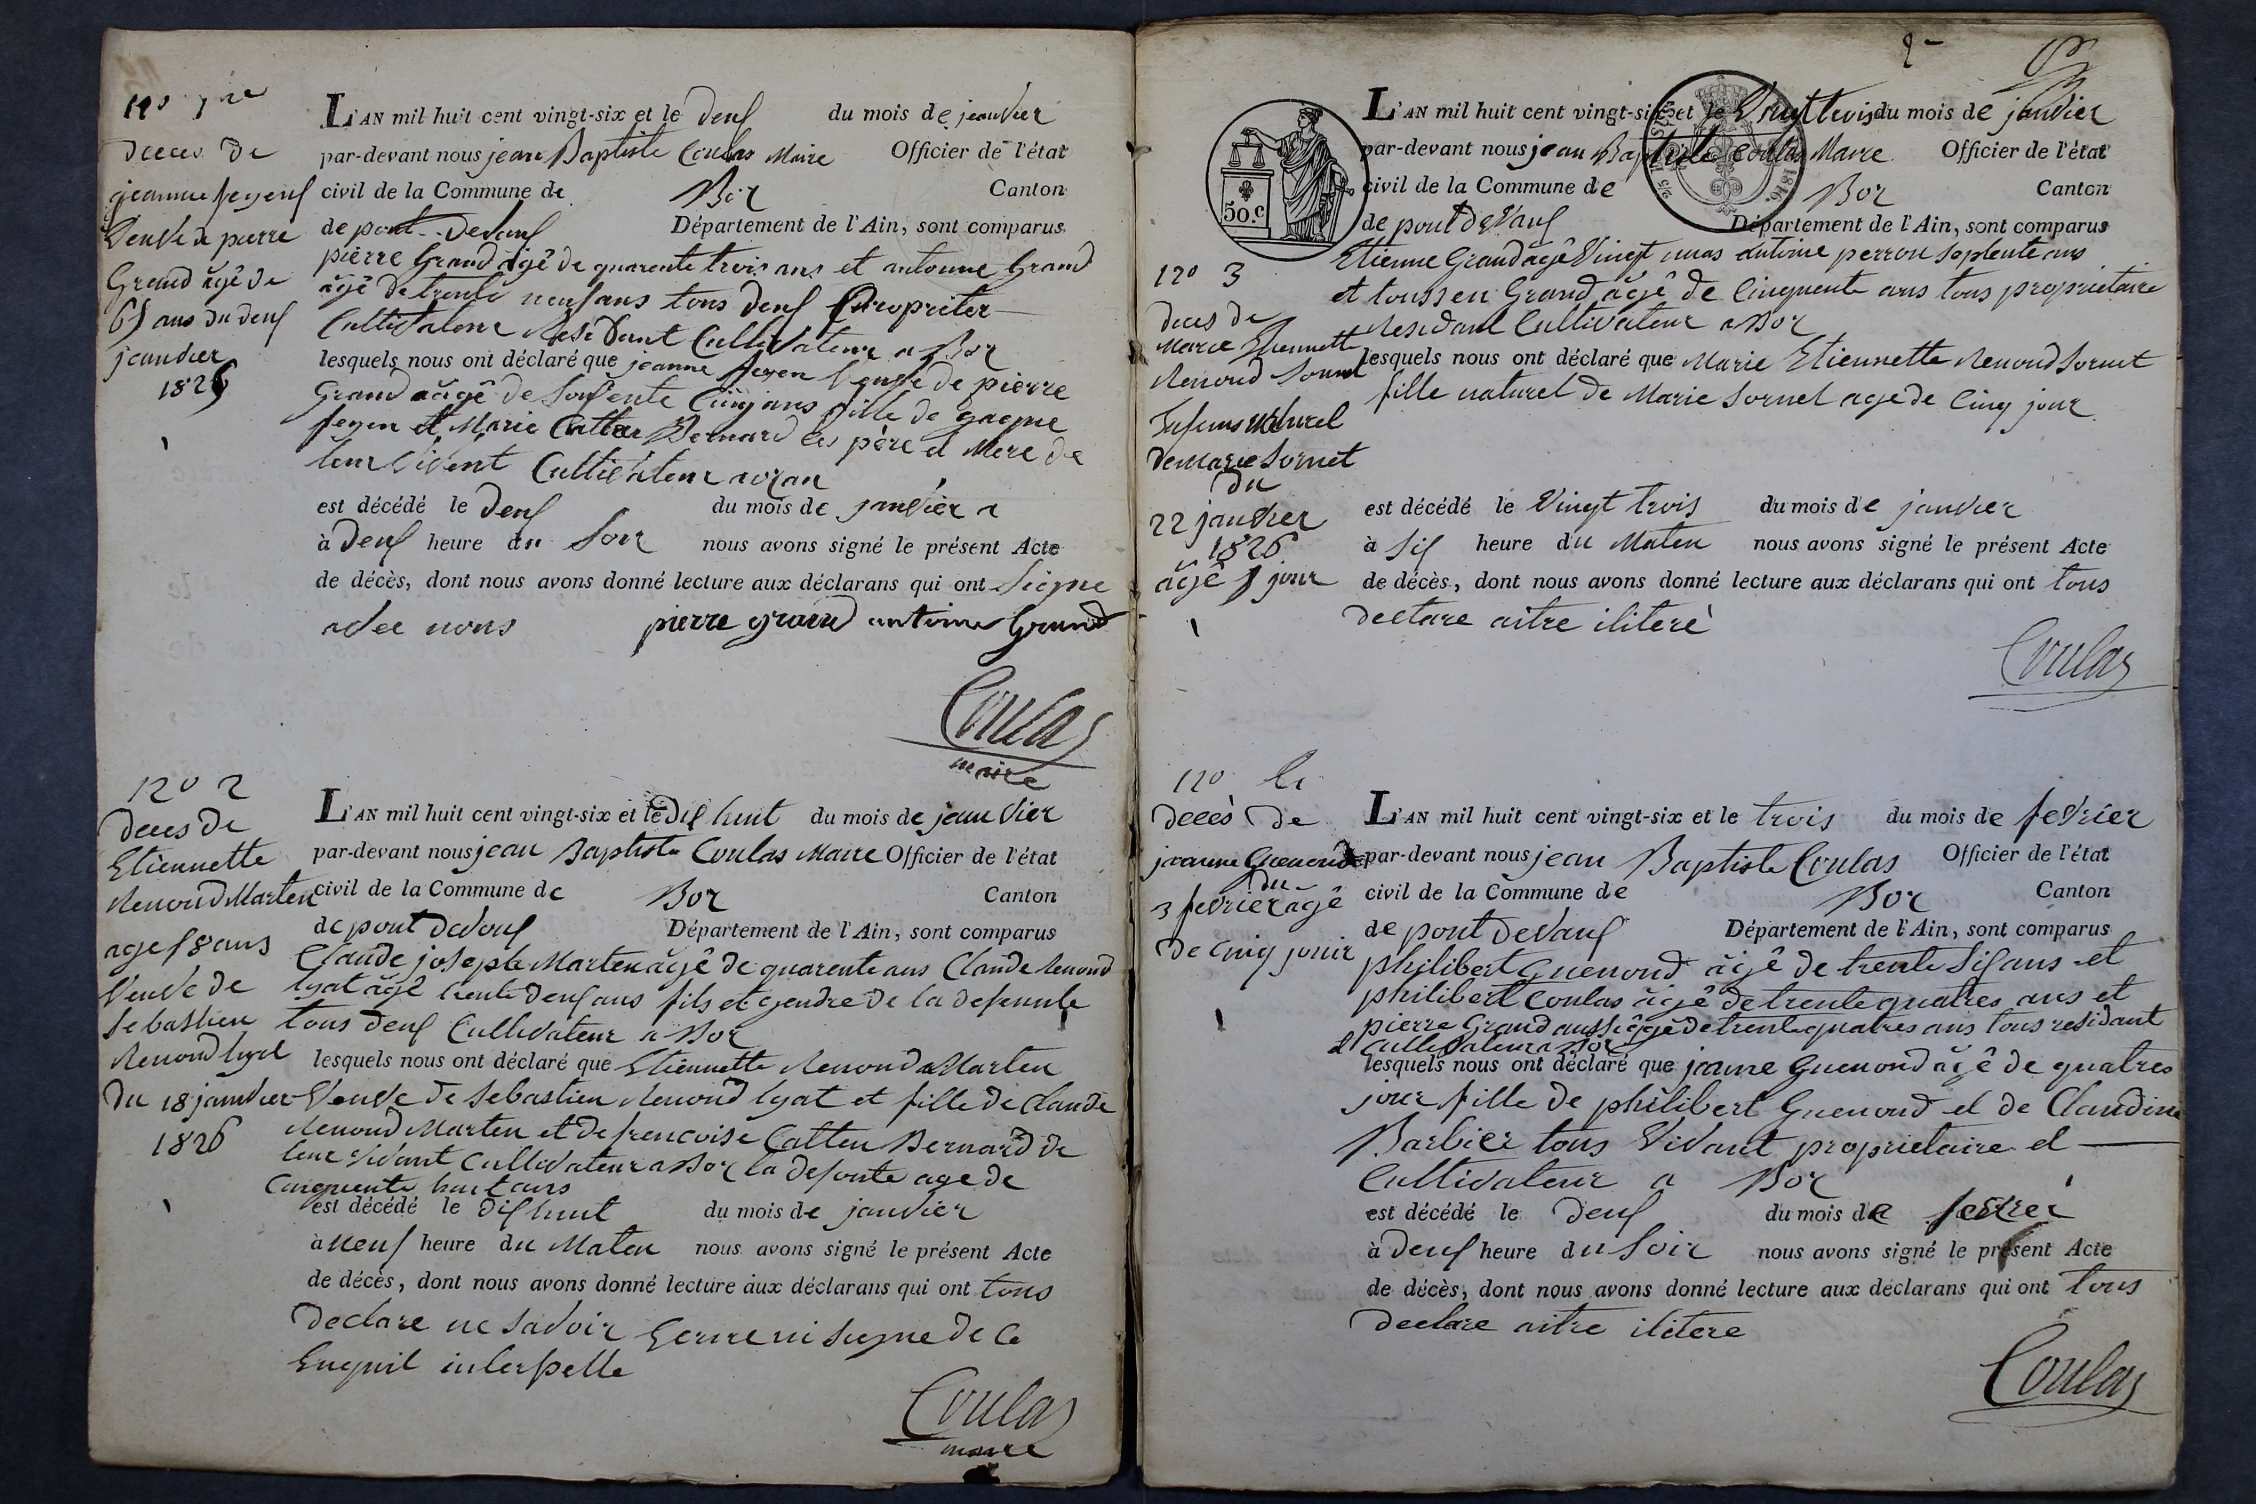 n° 1re
deces de
jeanne feyeuf
Veuve de pierre
Grand âgê de
65 ans du deuf
janvier
1826
L'AN mil huit cent vingt-six et le deuf du mois de jeanvier
par-devant nous jean Baptiste Coulas Maire Officier de l'état
civil de la Commune de Boz Canton
de pont-devauf Département de l'Ain, sont comparus
pierre Grand âgê de quarente trois ans et antoinne Grand
âgê de trente neuf ans tous deuf propriéter
Cultivateur Residant Cultivateur a Boz
lesquels nous ont déclaré que jeanne feyen Veuve de pierre
Grand aâgê de Soisente Cinq ans fille de
feyen et Marie Catten Bernard les père et Mere de
leur Vivent Cultivateur aozan
est décédé le deuf du mois de janvier a
à deuf heure du Soir nous avons signé le présent Acte
de décès, dont nous avons donné lecture aux déclarans qui ont Signe
avec nous pierre grand antoine Grand
Coulas
maire
n° 2
deces de
Etiennette
Renoud Marten
age 58 ans
Veuve de
Sebastien
Renoud lyat
du 18 janvier
1826
L'AN mil huit cent vingt-six et le dif huit du mois de jeanvier
par-devant nous jean Baptiste Coulas Maire Officier de l'état
civil de la Commune de Boz Canton
de pont devauf Département de l'Ain, sont comparus
Claude joseph Marten âgê de quarente ans Claude Renoud
lyat âgê trente deuf ans fils et gendre de la defeunte
tous deuf Cultivateur a Boz
lesquels nous ont déclaré que Etiennette Renoud Marten
Veuve de Sebastien Renoud lyat et fille de Claude
Renoud Marten et de frencoise Catten Bernard de
leur vivant Cultivateur a Boz la defonte age de
Cinquente huit ans
est décédé le dif huit du mois de janvier
à neuf heure du Maten nous avons signé le présent Acte
de décès, dont nous avons donné lecture aux déclarans qui ont tous
declare ne Savoir Ecrire ni Signe de ce
Enquil interpelle
Coulas
maire
2
50.c
1816
n° 3
deces de
Marie Etiennette
Renoud Sornet
Enfens naturel
de Marie Sornet
du
22 janvier
1826
âgê 5 jour
L'AN mil huit cent vingt-six et le Vingt trois du mois de janvier
par-devant nous jean Baptiste Coulas Maire Officier de l'état
civil de la Commune de Boz Canton
de pont deVauf Département de l'Ain, sont comparus
Etienne Grand âgê Vingt antoine perron Septente ans
et toussen Grand âgê de Cinquente ans tous proprietaire
Residant Cultivateur a Boz
lesquels nous ont déclaré que Marie Etiennette Renoud Sornet
fille naturel de Marie Sornet age de Cinq jour
est décédé le Vingt trois du mois de janvier
à Sif heure du Maten nous avons signé le présent Acte
de décès, dont nous avons donné lecture aux déclarans qui ont tous
declare aitre ilitere
Coulas
n° 4
decès de
jeanne Guenoud
du
3 fevrier âgê
de Cinq jour
L'AN mil huit cent vingt-six et le trois du mois de fevrier
par-devant nous jean Baptiste Coulas Officier de l'état
civil de la Commune de Boz Canton
de pont deVauf Département de l'Ain, sont comparus
philibert Guenoud âgê de trente Sif ans et
philibert Coulas âgê de trente quatres ans et
pierre Grand aussi âgê de trente quatres ans tous residant
et Cultivateur a Boz
lesquels nous ont déclaré que jeanne Guenoud âgê de quatres
jour fille de philibert Guenoud et de Claudine
Barbier tous Vivant proprietaire et
Cultivateur a Boz
est décédé le deuf du mois de fevrier
à deuf heure du Soir nous avons signé le présent Acte
de décès, dont nous avons donné lecture aux déclarans qui ont tous
declare aitre ilitere
Coulas